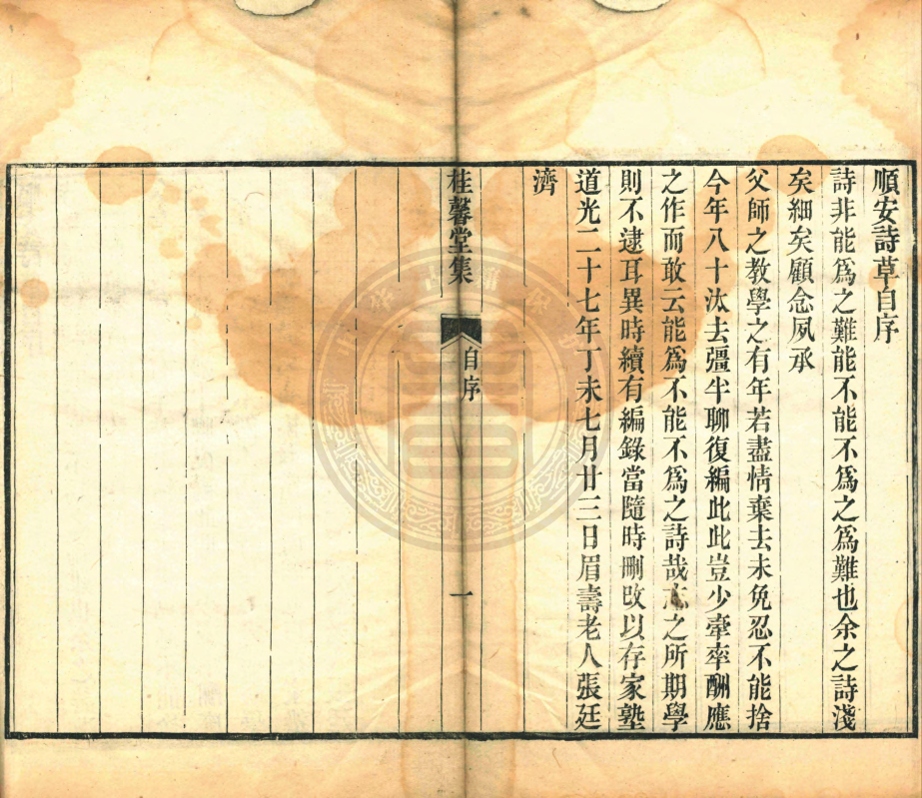 順安詩草自序
詩非能爲之難能不能不爲之爲難也余之詩淺
矣細矣顧念夙承
父師之教學之有年若盡情棄去未免忍不能捨
今年八十汰去彊半聊復編此此豈少牽率酬應
之作而敢云能爲不能不爲之詩哉志之所期學
則不逮耳異時續有編錄當隨時刪改以存家塾
道光二十七年丁未七月廿三日眉壽老人張廷
濟
桂馨堂集
自序
一